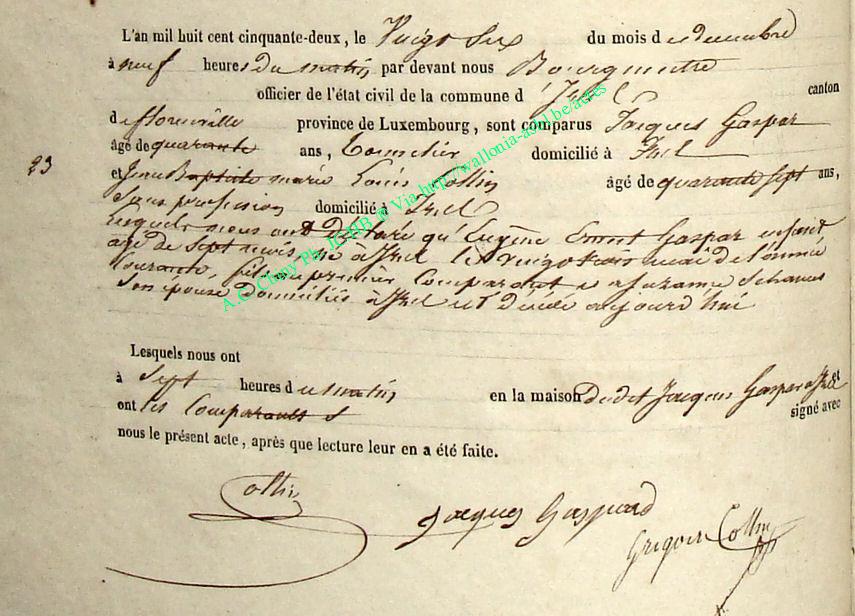 L'an mil huit cent cinquante-deux, le Vingt Six du mois de decembre
à neuf heures du matin par devant nous Bourgmestre
officier de l'état civil de la commune d'Izel canton
de florenville province de Luxembourg, sont comparus Jacques Gaspar
âgé de quarante ans, domicilié à Izel
23
et Jean Baptiste marie Louis Collin âgé de quarante sept ans,
Sans profession domicilié à Izel
lesquels nous ont déclaré qu'Eugène Ernest Gaspar enfant
âgé de Sept mois né à Izel le vingt mai de l'année
Courante, fils du premier Comparant et de Schaus
Son épouse Domiciliés à Izel est décédé aujourd'hui
Lesquels nous ont
à Sept heures du matin en la maison dudit Jacques Gaspar à Izel et
ont les Comparants signé avec
nous le présent acte, après que lecture leur en a été faite.
Collin
Jacques Gaspard
Grégoire Collin
A.C. Chiny Ph. Via http://wallonia-asbl.be/actes